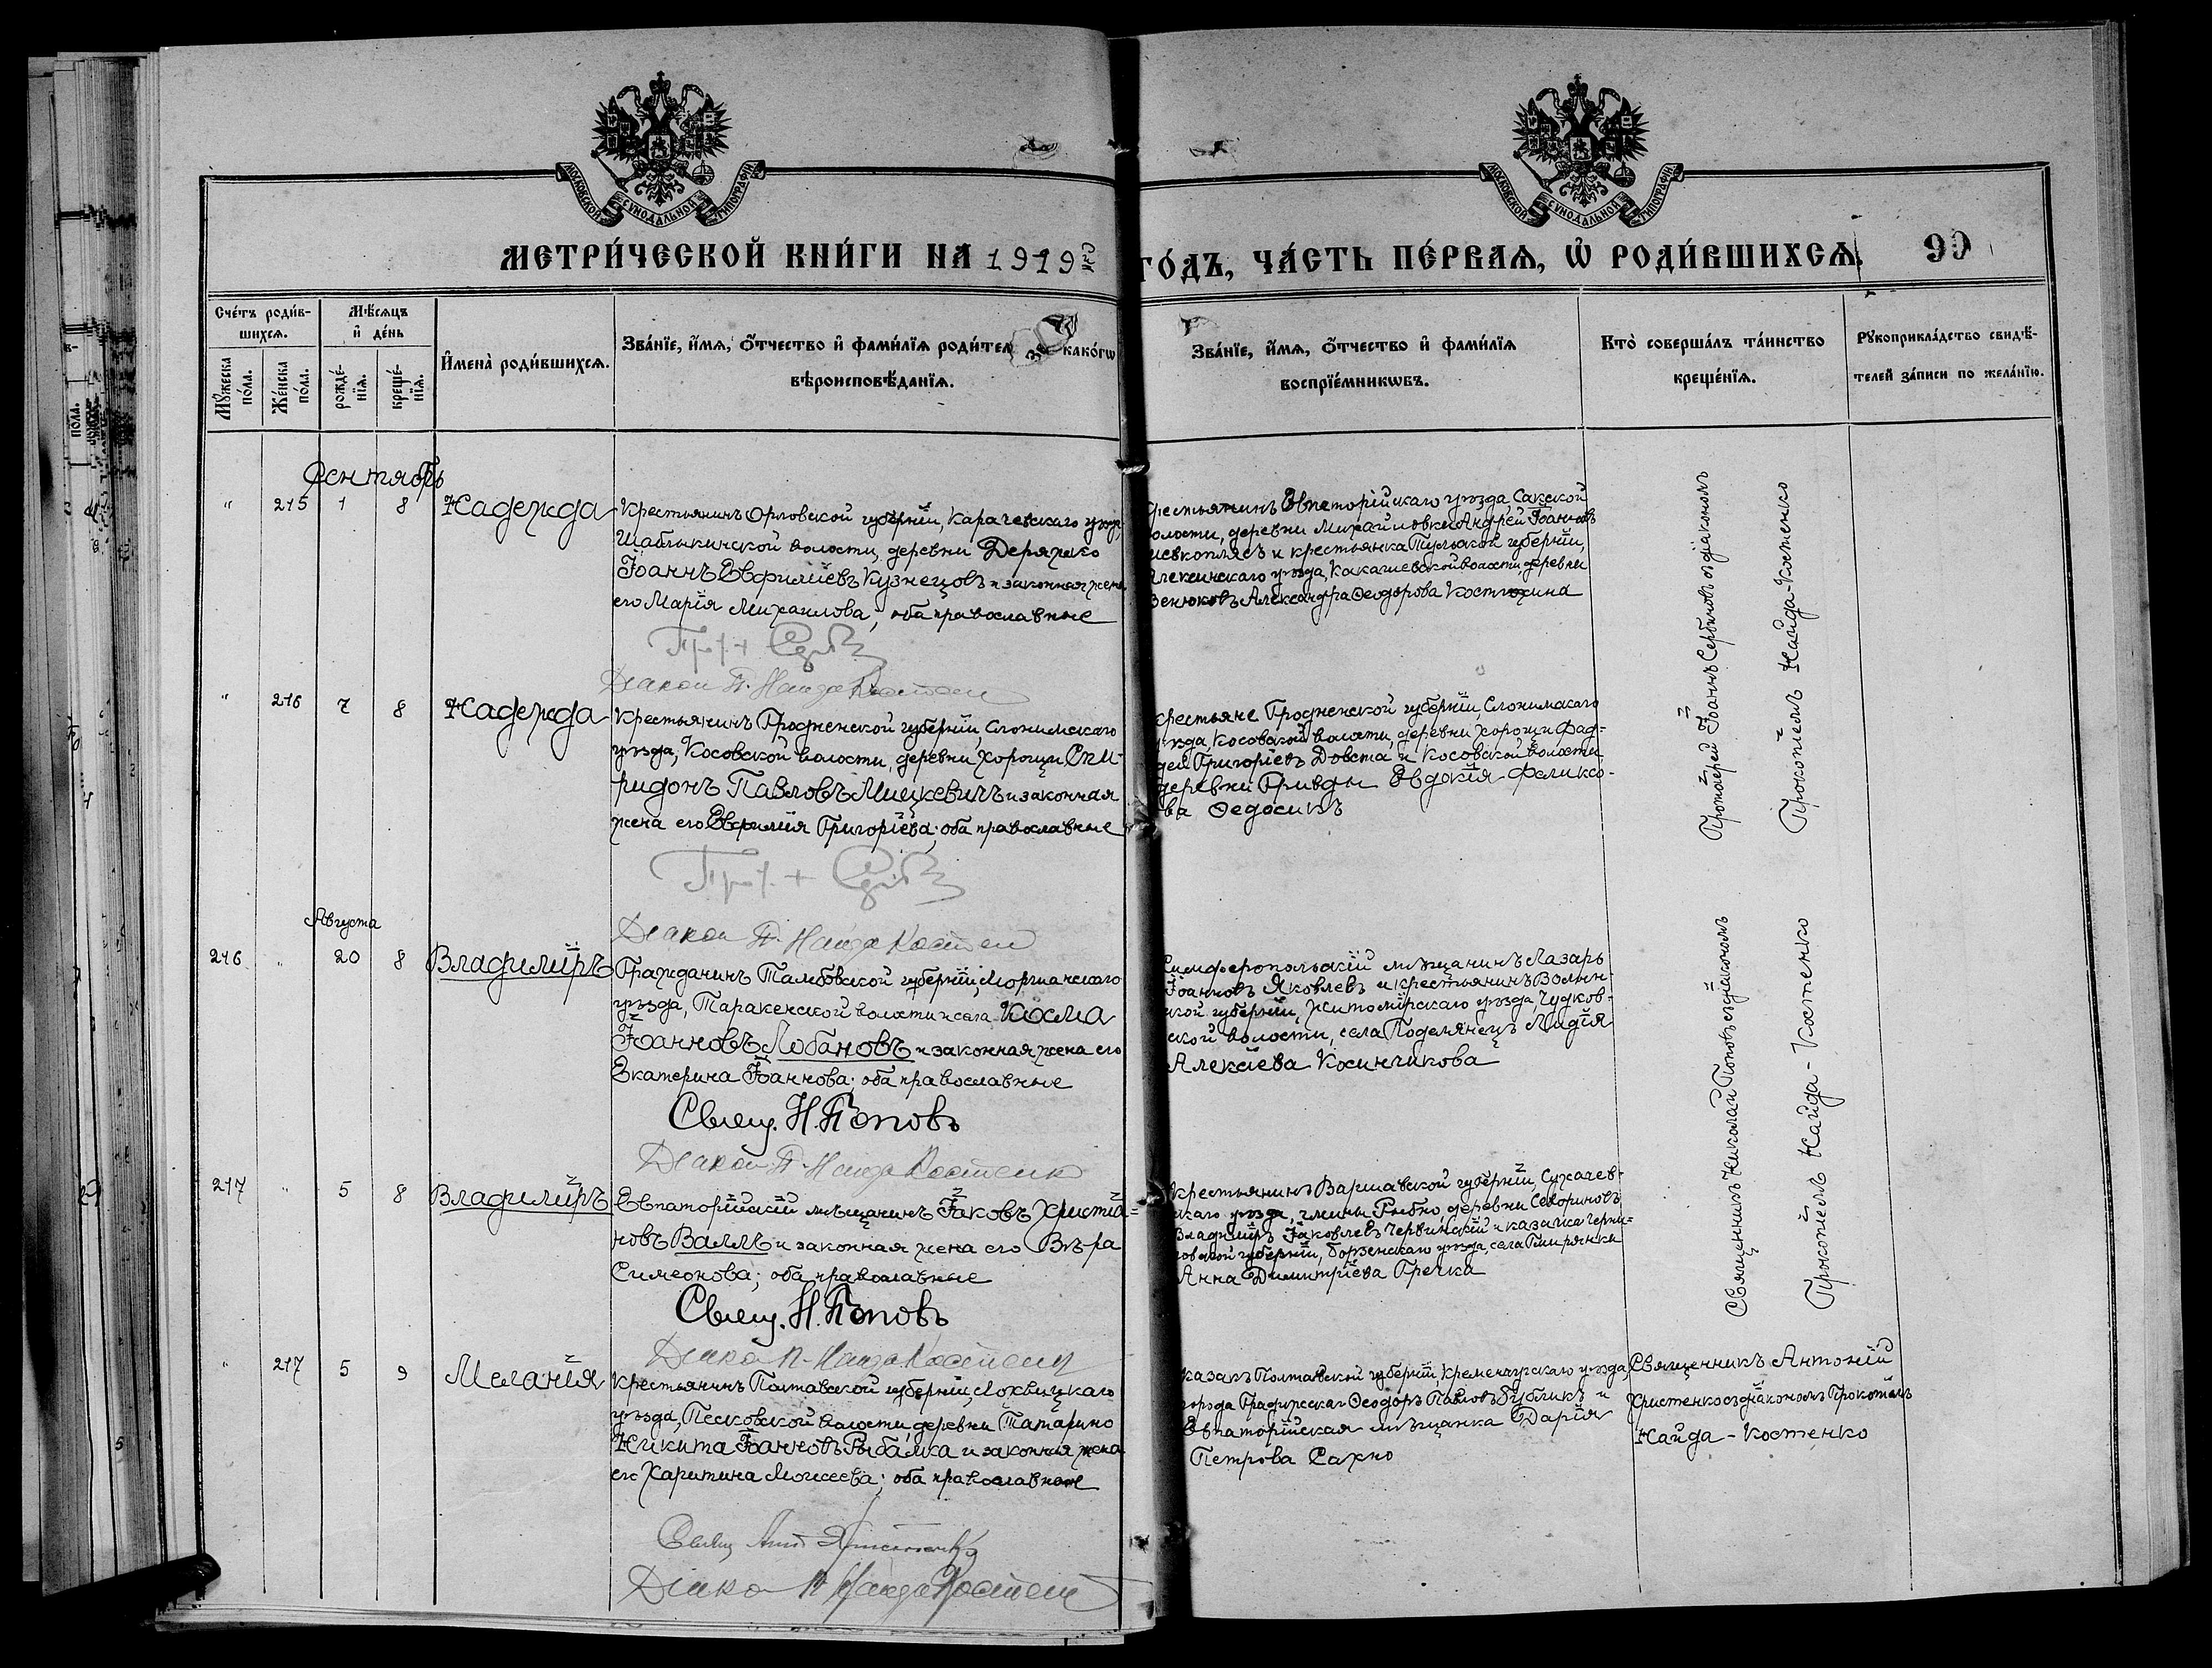 МОСКОВСКОЙ СѴНОДАЛЬНОЙ ТИПОГРАФІИ
МОСКОВСКОЙ СѴНОДАЛЬНОЙ ТИПОГРАФІИ
МЕТРИ́ЧЕСКОЙ КНИ́ГИ НА 1919 ГО́ДЪ, ЧА́СТЬ ПЕ́РВАѦ, Ѡ҆ РОДИ́ВШИХСѦ. 99
Сче́тъ роди́в-
шихсѧ.
Мꙋ́жеска по́ла.
Же́нска по́ла.
Мѣ́сѧцъ
и҆ де́нь
рожде́-
нїѧ.
креще́-
нїѧ.
И҆мена̀ роди́вшихсѧ.
Зва́нїе, и҆́мѧ, ѻ҆́тчество и҆ фами́лїѧ роди́тел како́гѡ
вѣроисповѣ́данїѧ.
Зва́нїе, и҆́мѧ, ѻ҆́тчество и҆ фами́лїѧ
воспрїе́мникѡвъ.
Кто̀ соверша́лъ та́инство
креще́нїѧ.
Рꙋкоприкла́дство свидѣ́-
телей за́писи по жела́нїю.
Сентябрь
" 215 1 8 Надежда
Крестьянинъ Орловской губерніи, Карачевскаго уѣзд,
Шаблыкинской волости, деревни Деряжко
Іоаннъ Евфиміевъ Кузнецовъ и законная жена
его Марія Михаилова; оба православные
Прот. + Серб
Діакон П. Найда Костен
рестьянинъ Евпаторійскаго уѣзда, Сакской
олости, деревни Михайловки Андрей Іоанновъ
иевкоплясъ и крестьянка Тульской губерніи,
Алексинскаго уѣзда, волости, деревни
Венюковъ Александра Ѳеодорова Костюхина
Протоіерей Іоаннъ Сербиновъ съ діакономъ
Прокопіемъ Найда-Костенко
" 216 7 8 Надежда
Крестьянинъ Гродненской губерніи, Слонимскаго
уѣзда, Косовской волости, деревни Хорощи Спи-
ридонъ Павловъ Мицкевичъ и законная
жена его Евфимія Григоріева; оба православные
Прот. + Серб
Діакон П. Найда Костен
рестьяне Гродненской губерніи, Слонимскаго
уѣзда Косовской волости, деревни Хорощи Фад-
дей Григоріевъ Довста и Косовской волости
деревни Гривды Евдокія Феликсо-
ва Ѳедосикъ
Августа
216 " 20 8 Владиміръ
Гражданинъ Тамбовской губерніи, Моршанскаго
уѣзда, Таракенской волости и села Косма
Іоанновъ Лобановъ и законная жена его
Екатерина Іоаннова; оба православные
Свящ. Н. Поповъ
Діакон П. Найда Костенк
Симферопольскій мѣщанинъ Лазарь
Іоанновъ Яковлевъ и крестьянинъ Волын-
ской губерніи, Житомірскаго уѣзда, Чудков-
ской волости, села Подолянецъ Лидія
Алексіева Косинчикова
Священникъ Николай Поповъ съ діакономъ
Прокопіемъ Найда-Костенко
217 " 5 8 Владиміръ
Евпаторійскій мѣщанинъ Іаковъ Христіа-
новъ Валлъ и законная жена его Вѣра
Симеонова; оба православные
Свящ. Н. Поповъ
Діако П. Найда Костен
крестьянинъ Варшавской губерніи, Сухачев-
скаго уѣзда, гмины Рыбно, деревни Севориновъ
Владиміръ Іаковлевъ Червинскій и казачка Черни-
говской губерніи, Борзенскаго уѣзда, села
Анна Димитріева Гречка
" 217 5 9 Меланія
Крестьянинъ Полтавской губерніи, Лохвицкаго
уѣзда, Песковской волости, деревни Татарино
Никита Іоанновъ Рыбалка и законная жена
его Харитина Моисеева; оба православные
Свящ Ант Христенко
Діако П Найда Костен
казакъ Полтавской губерніи, Кременчугскаго уѣзда,
города Градижска Ѳеодоръ Павловъ Бубликъ и
Евпаторійская мѣщанка Дарія
Петрова Сахно
Священникъ Антоній
Христенко съ діакономъ Прокопіемъ
Найда-Костенко